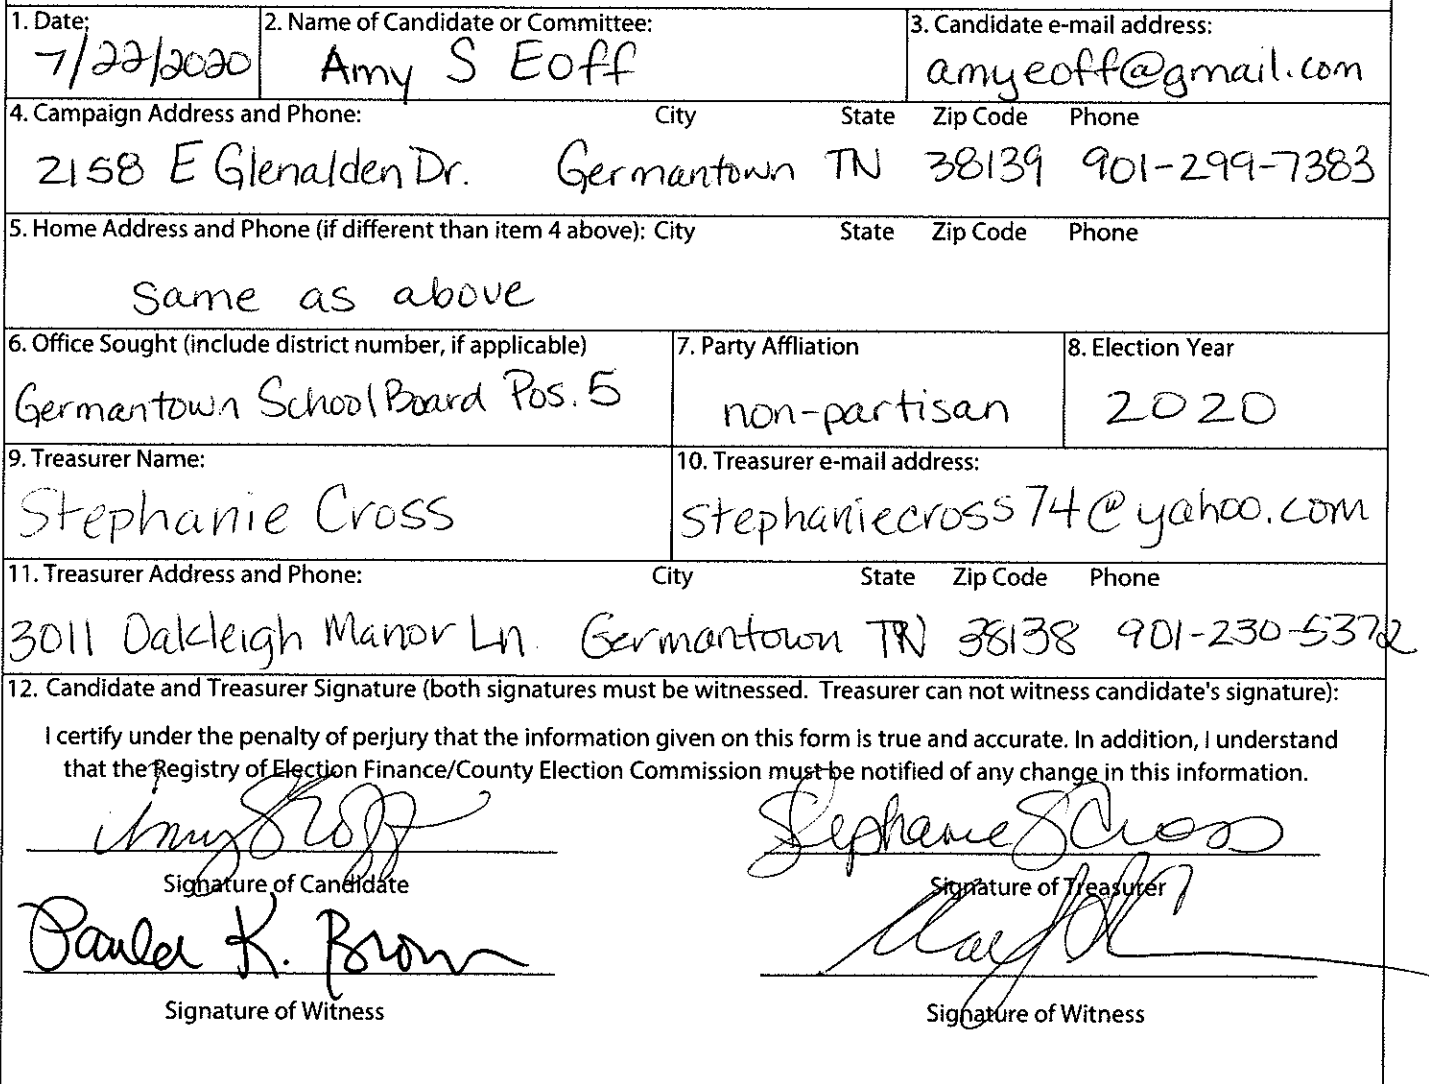 1. Date: 2. Name of Candidate or Committee: 3. Candidate e-mail address:
7/22/2020 Amy S Eoff amyeoff@gmail.com
4. Campaign Address and Phone: City State Zip Code Phone
2158 E Glenalden Dr. Germantown TN 38139 901-299-7383
5. Home Address and Phone (if different than item 4 above): City State Zip Code Phone
same as above
6. Office Sought (include district number, if applicable) 7. Party Affliation 8. Election Year
Germantown School Board Pos. 5 non-partisan 2020
9. Treasurer Name: 10. Treasurer e-mail address:
Stephanie Cross stephaniecross74@yahoo.com
11. Treasurer Address and Phone: City State Zip Code Phone
3011 Oakleigh Manor Ln Germantown TN 38138 901-230-5372
12. Candidate and Treasurer Signature (both signatures must be witnessed. Treasurer can not witness candidate's signature):
I certify under the penalty of perjury that the information given on this form is true and accurate. In addition, I understand
that the Registry of Election Finance/County Election Commission must be notified of any change in this information.
Amy S Eoff Stephanie S Cross
Signature of Candidate Signature of Treasurer
Paula K. Brown
Signature of Witness Signature of Witness